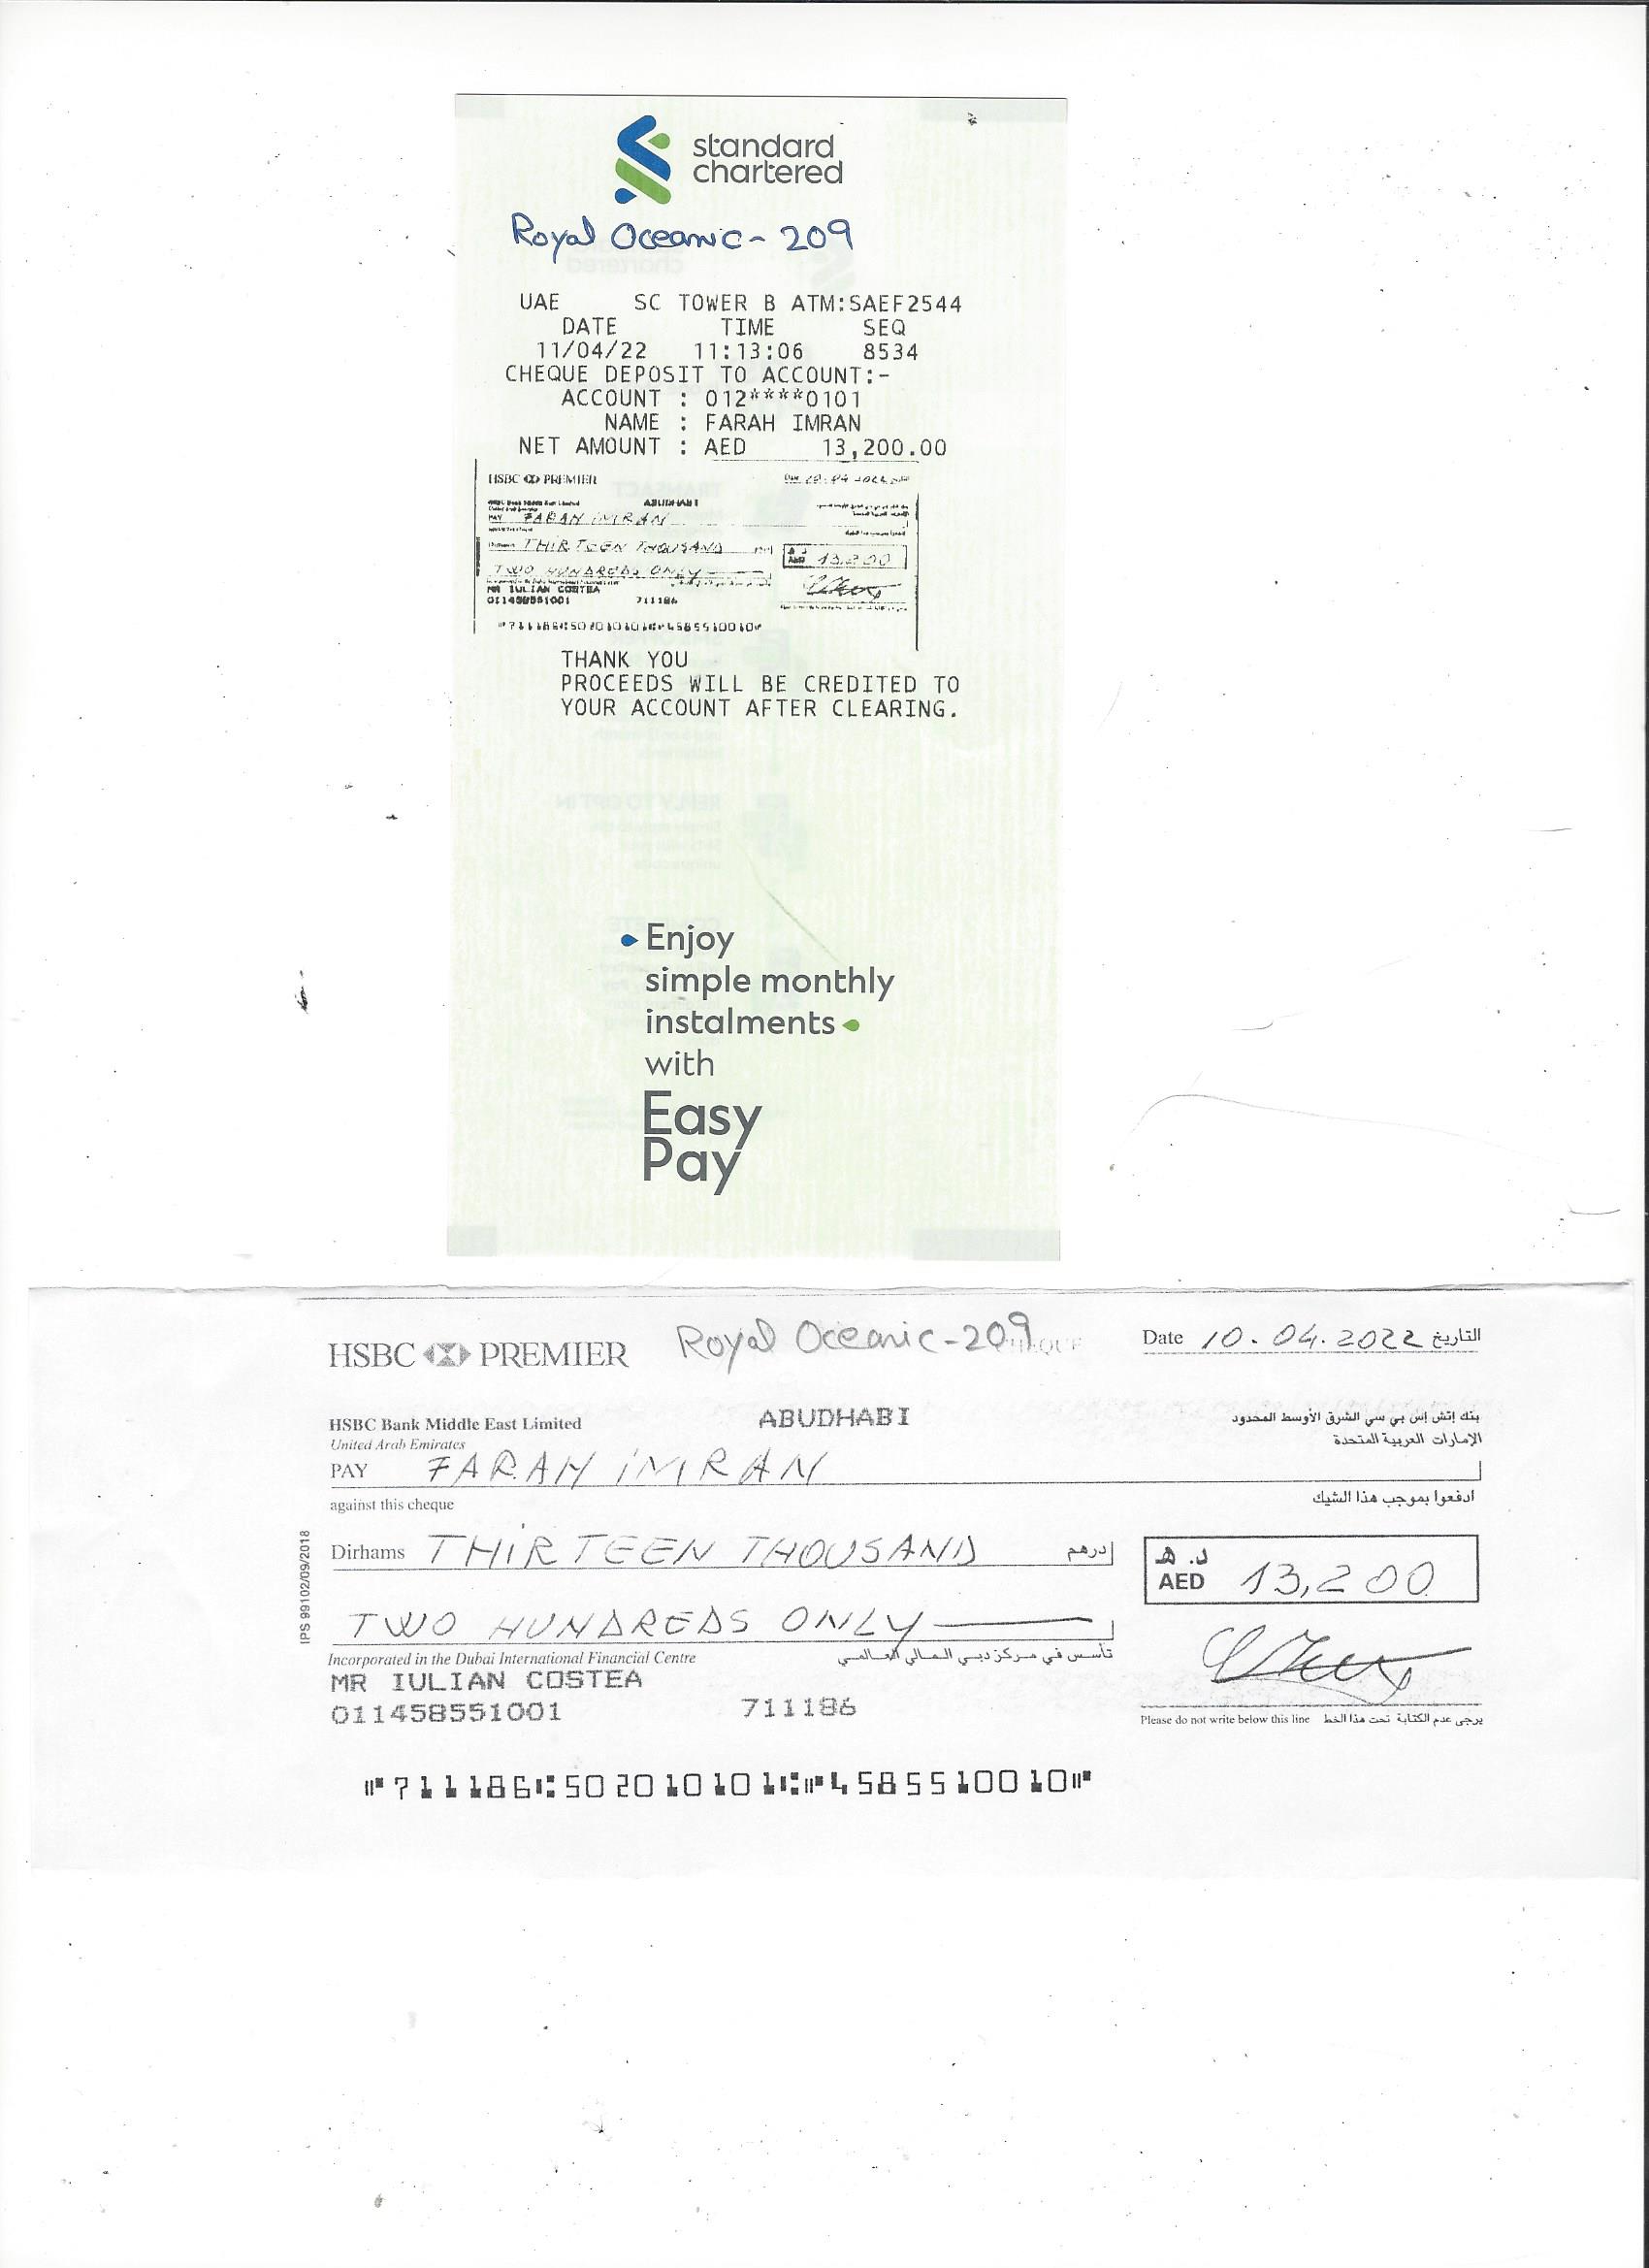 standard
chartered
Royal Oceanic - 209
UAE SC TOWER B ATM:SAEF2544
DATE TIME SEQ
11/04/22 11:13:06 8534
CHEQUE DEPOSIT TO ACCOUNT:-
ACCOUNT : 012****0101
NAME : FARAH IMRAN
NET AMOUNT : AED 13,200.00
HSBC PREMIER
ABUDHABI
PAY FARAH IMRAN
THIRTEEN THOUSAND
AED 13,200
TWO HUNDREDS ONLY
MR IULIAN COSTEA
011458551001 711186
THANK YOU
PROCEEDS WILL BE CREDITED TO
YOUR ACCOUNT AFTER CLEARING.
Enjoy
simple monthly
instalments
with
Easy
Pay
HSBC PREMIER Royal Oceanic - 209 Date 10.04.2022 التاريخ
HSBC Bank Middle East Limited ABUDHABI بنك إتش إس بي سي الشرق الأوسط المحدود
United Arab Emirates الإمارات العربية المتحدة
PAY FARAH IMRAN
against this cheque ادفعوا بموجب هذا الشيك
IPS 99102/09/2018
Dirhams THIRTEEN THOUSAND درهم
د. هـ
AED 13,200
TWO HUNDREDS ONLY
Incorporated in the Dubai International Financial Centre تأسس في مركز دبي المالي العالمي
MR IULIAN COSTEA
011458551001 711186
Please do not write below this line يرجى عدم الكتابة تحت هذا الخط
⑈711186⑆502010101⑆⑈4585510010⑈